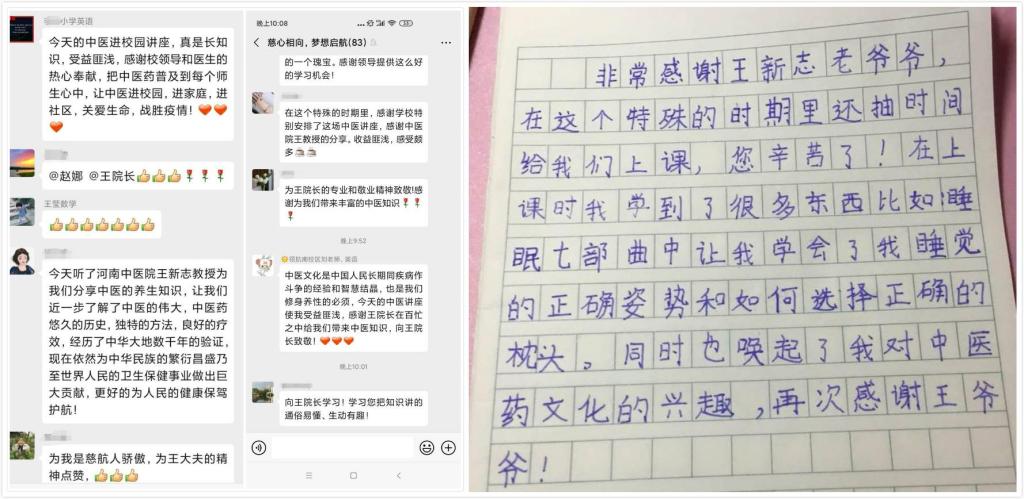 小学英语
今天的中医进校园讲座，真是长知
识，受益匪浅，感谢校领导和医生的
热心奉献，把中医药普及到每个师
生心中，让中医进校园，进家庭，进
社区，关爱生命，战胜疫情！❤❤
❤
@赵娜 @王院长👍👍👍🌹🌹🌹
王莹数学
👍👍👍👍👍👍👍
今天听了河南中医院王新志教授为
我们分享中医的养生知识，让我们
近一步了解了中医的伟大，中医药
悠久的历史，独特的方法，良好的疗
效，经历了中华大地数千年的验证，
现在依然为中华民族的繁衍昌盛乃
至世界人民的卫生保健事业做出巨
大贡献，更好的为人民的健康保驾
护航！
为我是慈航人骄傲，为王大夫的精
神点赞，👍👍👍
晚上10:08
33
慈心相向，梦想启航(83)
的一个瑰宝。感谢领导提供这么好
的学习机会！
在这个特殊的时期里，感谢学校特
别安排了这场中医讲座，感谢中医
院王教授的分享。收益匪浅，感受颇
多☕☕
为王院长的专业和敬业精神致敬！感
谢为我们带来丰富的中医知识🌹🌹
🌹
晚上9:52
领航南校区刘老师，英语
中医文化是中国人民长期同疾病作
斗争的经验和智慧结晶，也是我们
修身养性的必须，今天的中医讲座
使我受益匪浅，感谢王院长在百忙
之中给我们带来中医知识，向王院
长致敬！❤❤❤
晚上10:01
向王院长学习！学习您把知识讲的
通俗易懂、生动有趣！
非常感谢王新志老爷爷，
在这个特殊的时期里还抽时间
给我们上课，您辛苦了！在上
课时我学到了很多东西比如：睡
眠七部曲中让我学会了我睡觉
的正确姿势和如何选择正确的
枕头。同时也唤起了我对中医
药文化的兴趣，再次感谢王爷
爷！